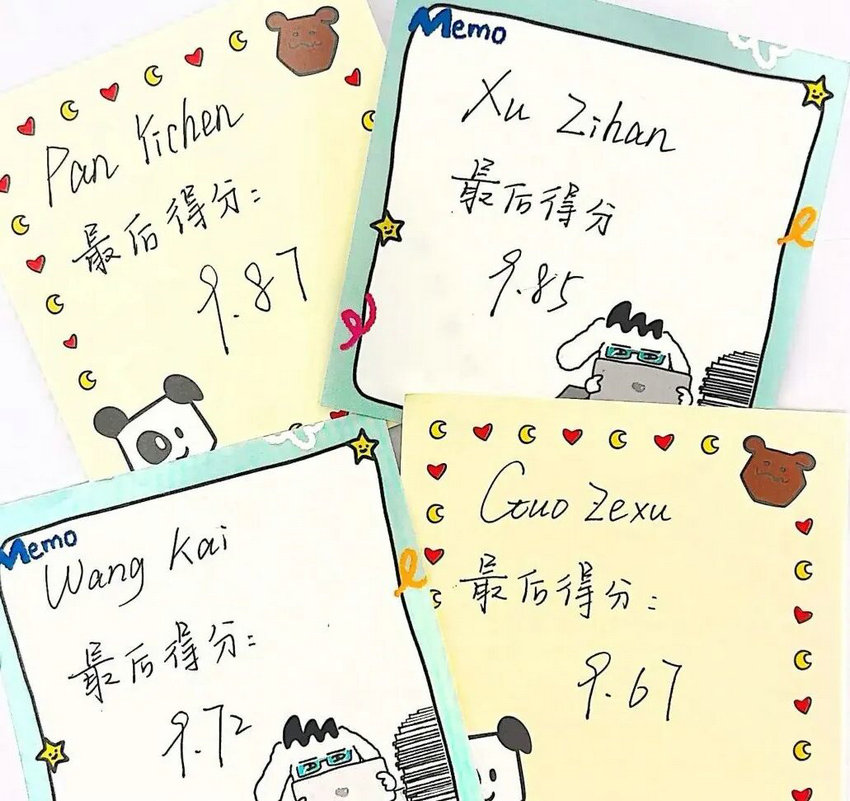 Pan Yichen
最后得分：
9.87
Memo
Xu Zihan
最后得分
9.85
Memo
Wang Kai
最后得分：
9.72
Guo Zexu
最后得分：
9.67